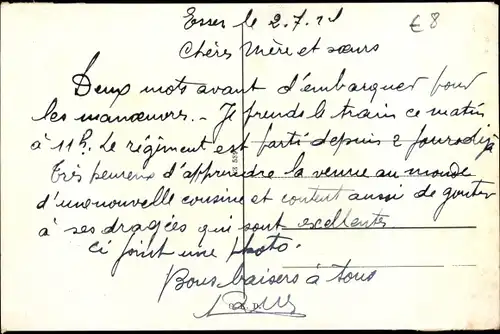 le 2.7.
€ 8
Chères Mère et sœurs
Deux mots avant d'embarquer pour
les manœuvres. - Je prends le train ce matin
à 11h. Le régiment est parti depuis 2 jours déjà
Très heureux d'apprendre la venue au monde
d'une nouvelle cousine et content aussi de gouter
à ses dragées qui sont excellentes
ci joint une photo.
Bons baisers à tous